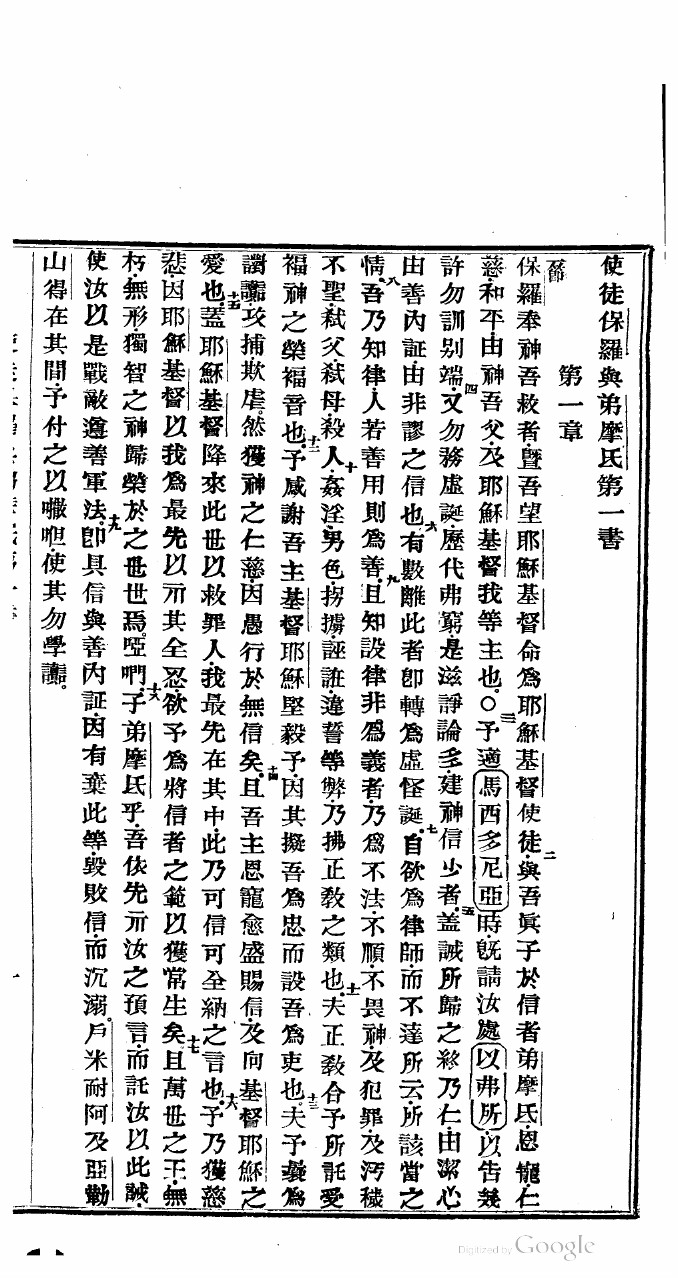 使徒保羅與弟摩氏第一書
第一章
節
保羅奉神吾救者曁吾望耶穌基督命爲耶穌基督使徒二與吾眞子於信者弟摩氏恩寵仁
慈和平由神吾父及耶穌基督我等主也〇三予適馬西多尼亞時旣請汝處以弗所以告幾
許勿訓別端四又勿務虛誕歷代弗窮是滋諍論多建神信少者五葢誡所歸之終乃仁由潔心
由善內証由非謬之信也六有數離此者卽轉爲虛怪誕七自欲爲律師而不達所云所該當之
情八吾乃知律人若善用則爲善九且知設律非爲義者乃爲不法不順不畏神及犯罪及汚穢
不聖弑父弑母殺人十姦淫男色拐擄誣誑違誓等弊乃拂正敎之類也十一夫正敎合予所託受
福神之榮福音也十二予感謝吾主基督耶穌堅毅予因其擬吾爲忠而設吾爲吏也十三夫予曩爲
謭讟攻捕欺虐然獲神之仁慈因愚行於無信矣十四且吾主恩寵愈盛賜信及向基督耶穌之
愛也十五葢耶穌基督降來此世以救罪人我最先在其中此乃可信可全納之言也十六予乃獲慈
悲因耶穌基督以我爲最先以示其全忍欲予爲將信者之範以獲常生矣十七且萬世之王無
朽無形獨智之神歸榮於之世世焉啞𠵽十八予弟摩氏乎吾依先示汝之預言而託汝以此誡
使汝以是戰敵遵善軍法十九卽具信與善內証因有棄此等毀敗信而沉溺戶米耐阿及亞勒
山得在其間予付之以𠾐呾使其勿學讟
Digitized by Google